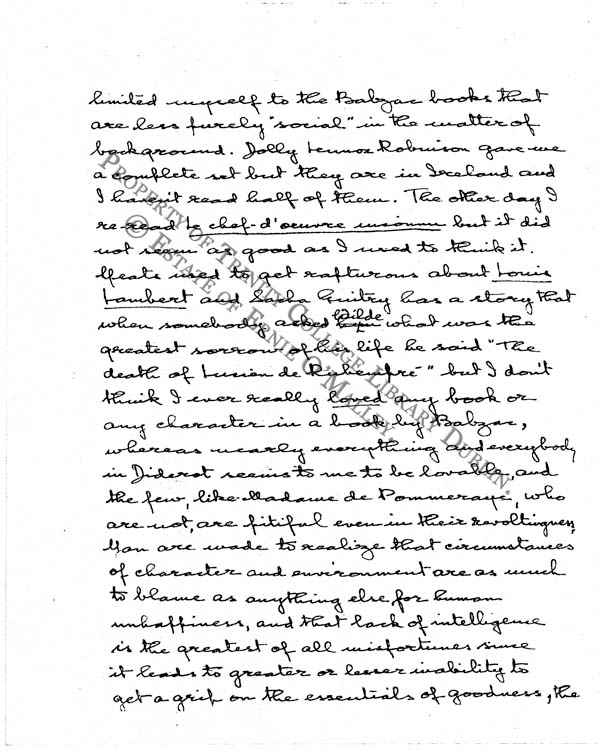 limited myself to the Balzac books that
are less purely "social" in the matter of
background. Dolly Lennox Robinson gave me
a complete set but they are in Ireland and
I haven't read half of them. The other day I
re-read Le chef-d'oeuvre inconnu but it did
not seem as good as I used to think it.
Yeats used to get rapturous about Louis
Lambert and Sacha Guitry has a story that
when somebody asked Wilde what was the
greatest sorrow of his life he said "The
death of Lucien de Rubempré" but I don't
think I ever really loved any book or
any character in a book by Balzac,
whereas nearly everything and everybody
in Diderot seems to me to be lovable, and
the few, like Madame de Pommeraye, who
are not, are pitiful even in their revoltingness.
You are made to realize that circumstances
of character and environment are as much
to blame as anything else for human
unhappiness, and that lack of intelligence
is the greatest of all misfortunes since
it leads to greater or lesser inability to
get a grip on the essentials of goodness, the
Property of Trinity College Library Dublin.
© Estate of Ernie O'Malley